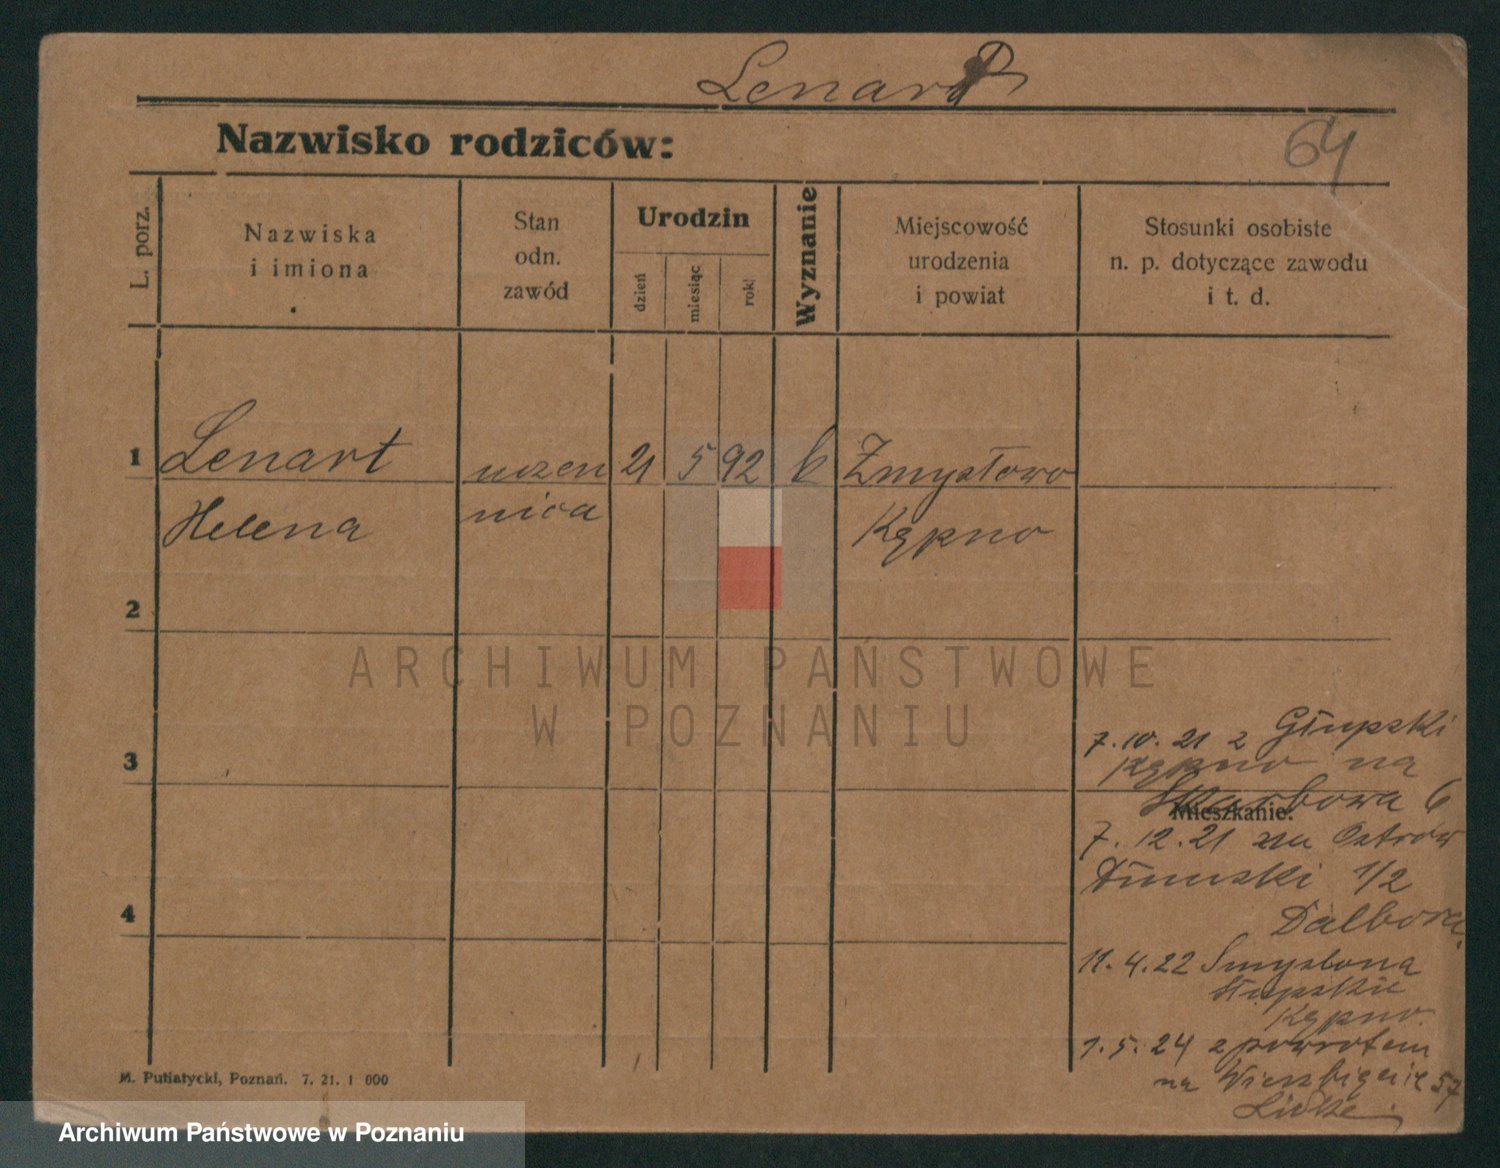 Lenart
Nazwisko rodziców:
64
L. porz.
Nazwiska
i imiona
Stan
odn.
zawód
Urodzin
dzień
miesiąc
rok
Wyznanie
Miejscowość
urodzenia
i powiat
Stosunki osobiste
n. p. dotyczące zawodu
i t. d.
1 Lenart uczen 21 5 92 k Zmysłowo
Helena nica Kępno
2
3
4
7.10.21 z Głupski
Kępno na
Skarbowa 6
Mieszkanie:
7.12.21 na Ostrów
Tumski 1/2
Dalbora
11.4.22 Smyslona
Słupskie
Kępno.
1.5.24 z powrotem
na Wierzbięcic 57
ARCHIWUM PAŃSTWOWE
W POZNANIU
M. Putiatycki, Poznań. 7. 21. 1 000
Archiwum Państwowe w Poznaniu